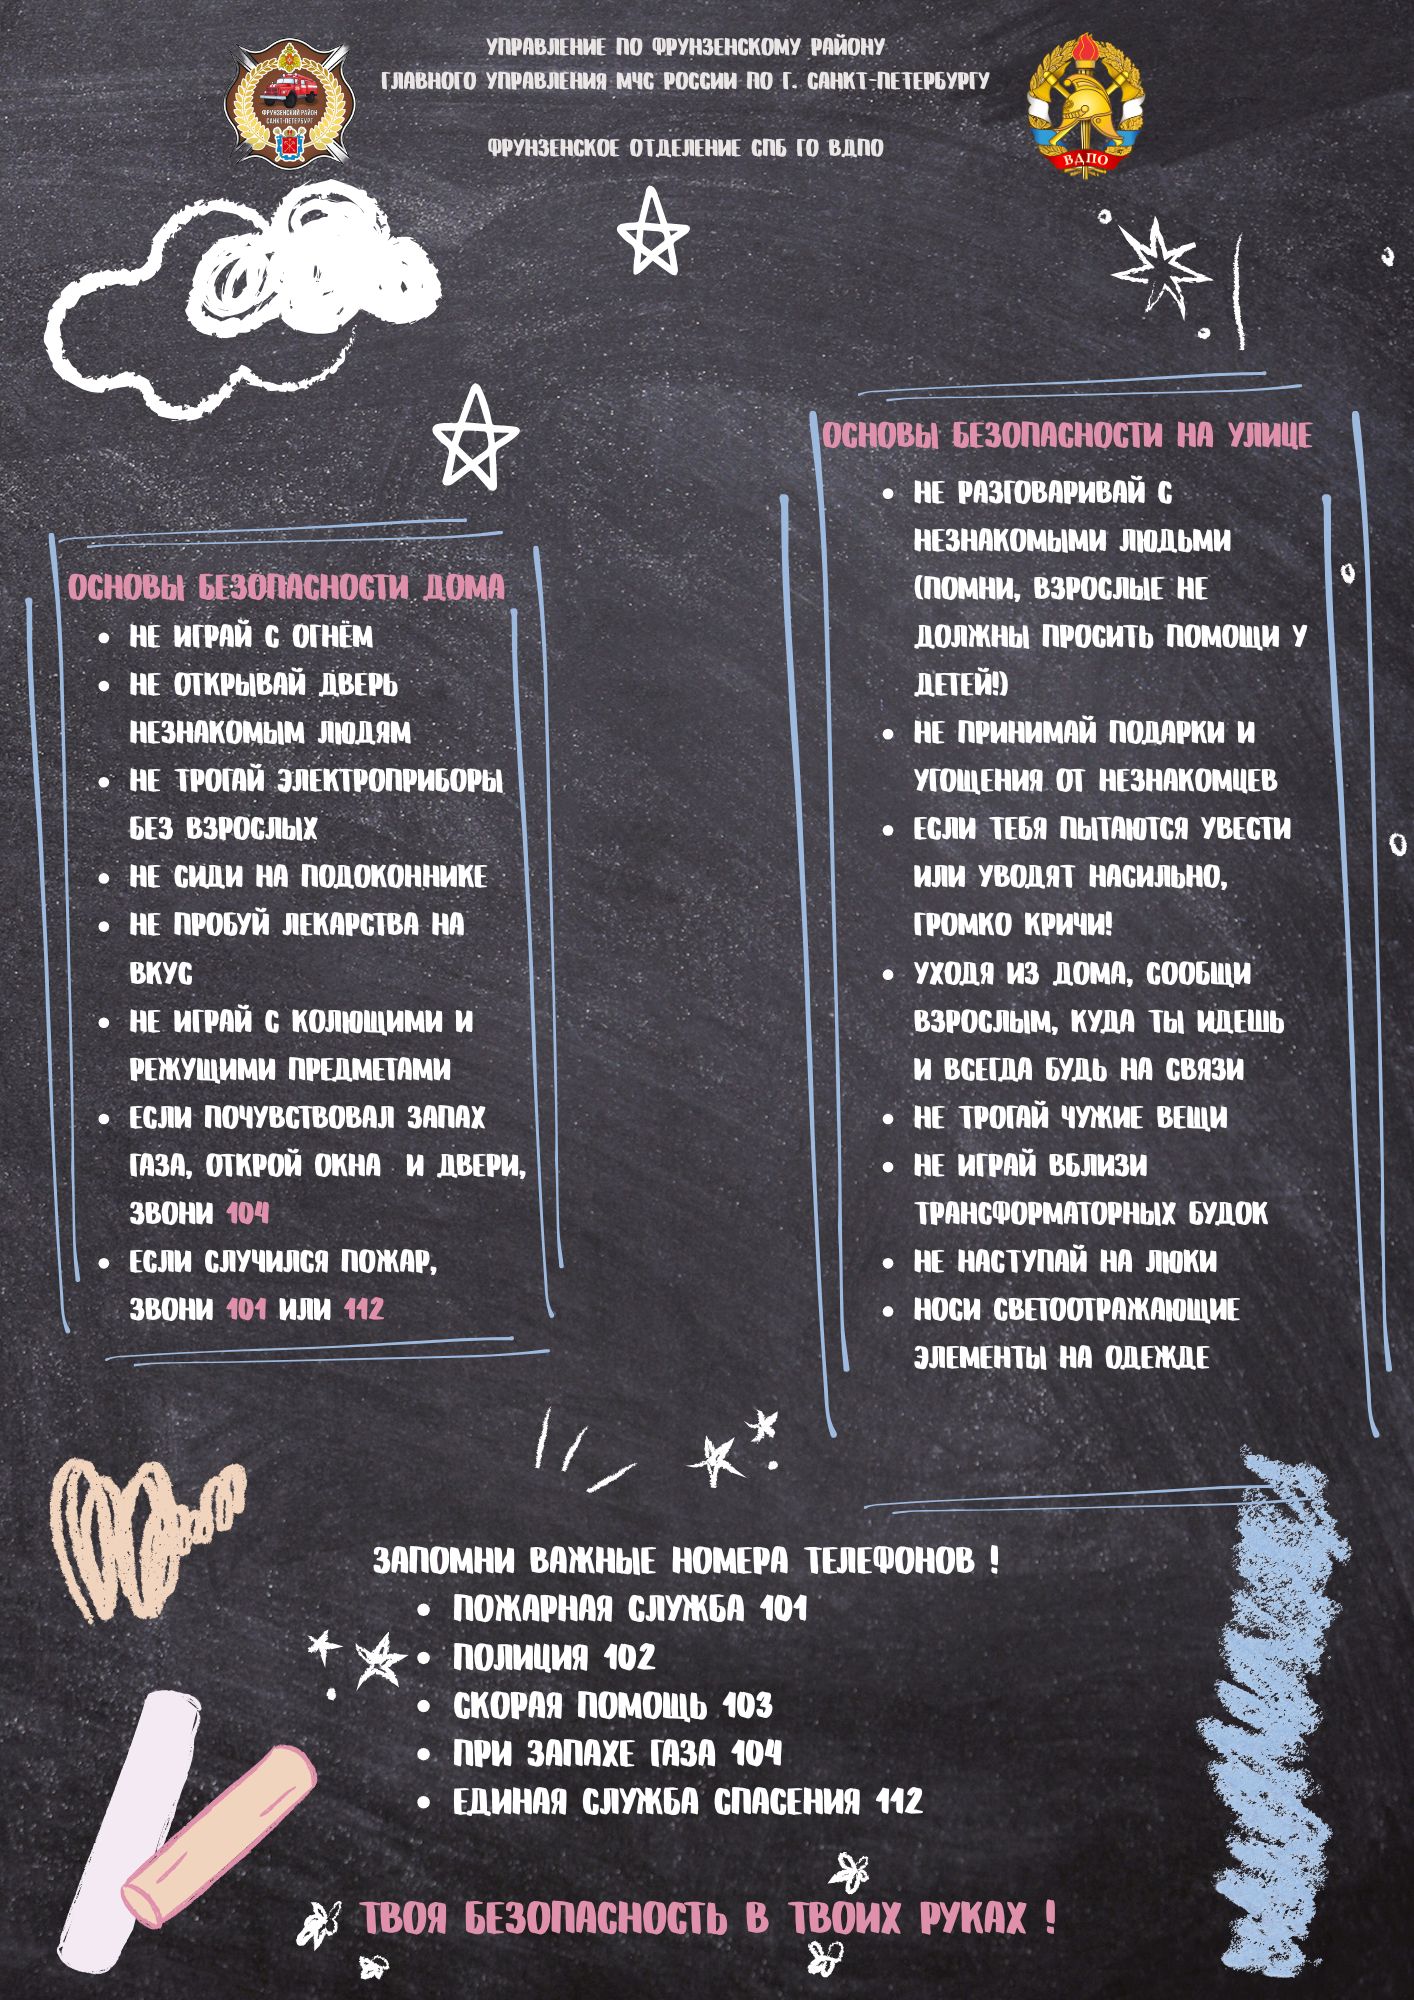 УПРАВЛЕНИЕ ПО ФРУНЗЕНСКОМУ РАЙОНУ
ГЛАВНОГО УПРАВЛЕНИЯ МЧС РОССИИ ПО Г. САНКТ-ПЕТЕРБУРГУ
ФРУНЗЕНСКОЕ ОТДЕЛЕНИЕ СПБ ГО ВДПО
ФРУНЗЕНСКИЙ РАЙОН
САНКТ-ПЕТЕРБУРГ
ВДПО
ОСНОВЫ БЕЗОПАСНОСТИ ДОМА
• НЕ ИГРАЙ С ОГНЁМ
• НЕ ОТКРЫВАЙ ДВЕРЬ
НЕЗНАКОМЫМ ЛЮДЯМ
• НЕ ТРОГАЙ ЭЛЕКТРОПРИБОРЫ
БЕЗ ВЗРОСЛЫХ
• НЕ СИДИ НА ПОДОКОННИКЕ
• НЕ ПРОБУЙ ЛЕКАРСТВА НА
ВКУС
• НЕ ИГРАЙ С КОЛЮЩИМИ И
РЕЖУЩИМИ ПРЕДМЕТАМИ
• ЕСЛИ ПОЧУВСТВОВАЛ ЗАПАХ
ГАЗА, ОТКРОЙ ОКНА И ДВЕРИ,
ЗВОНИ 104
• ЕСЛИ СЛУЧИЛСЯ ПОЖАР,
ЗВОНИ 101 ИЛИ 112
ОСНОВЫ БЕЗОПАСНОСТИ НА УЛИЦЕ
• НЕ РАЗГОВАРИВАЙ С
НЕЗНАКОМЫМИ ЛЮДЬМИ
(ПОМНИ, ВЗРОСЛЫЕ НЕ
ДОЛЖНЫ ПРОСИТЬ ПОМОЩИ У
ДЕТЕЙ!)
• НЕ ПРИНИМАЙ ПОДАРКИ И
УГОЩЕНИЯ ОТ НЕЗНАКОМЦЕВ
• ЕСЛИ ТЕБЯ ПЫТАЮТСЯ УВЕСТИ
ИЛИ УВОДЯТ НАСИЛЬНО,
ГРОМКО КРИЧИ!
• УХОДЯ ИЗ ДОМА, СООБЩИ
ВЗРОСЛЫМ, КУДА ТЫ ИДЕШЬ
И ВСЕГДА БУДЬ НА СВЯЗИ
• НЕ ТРОГАЙ ЧУЖИЕ ВЕЩИ
• НЕ ИГРАЙ ВБЛИЗИ
ТРАНСФОРМАТОРНЫХ БУДОК
• НЕ НАСТУПАЙ НА ЛЮКИ
• НОСИ СВЕТООТРАЖАЮЩИЕ
ЭЛЕМЕНТЫ НА ОДЕЖДЕ
ЗАПОМНИ ВАЖНЫЕ НОМЕРА ТЕЛЕФОНОВ !
• ПОЖАРНАЯ СЛУЖБА 101
• ПОЛИЦИЯ 102
• СКОРАЯ ПОМОЩЬ 103
• ПРИ ЗАПАХЕ ГАЗА 104
• ЕДИНАЯ СЛУЖБА СПАСЕНИЯ 112
ТВОЯ БЕЗОПАСНОСТЬ В ТВОИХ РУКАХ !